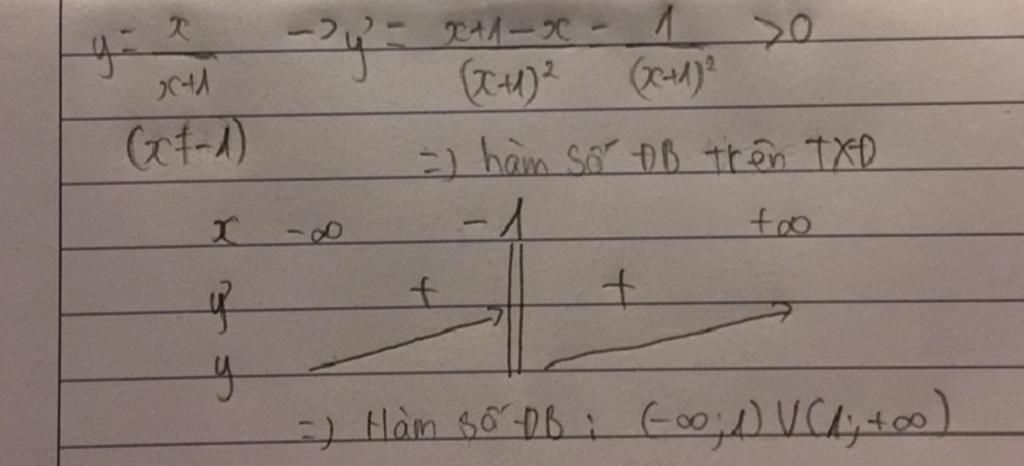 y = x/(x+1) → y' = (x+1-x)/(x+1)² = 1/(x+1)² > 0
(x ≠ -1)
=) hàm số ĐB trên TXĐ
x -∞ -1 +∞
y' + +
y
=) Hàm số ĐB : (-∞;1) V (1;+∞)